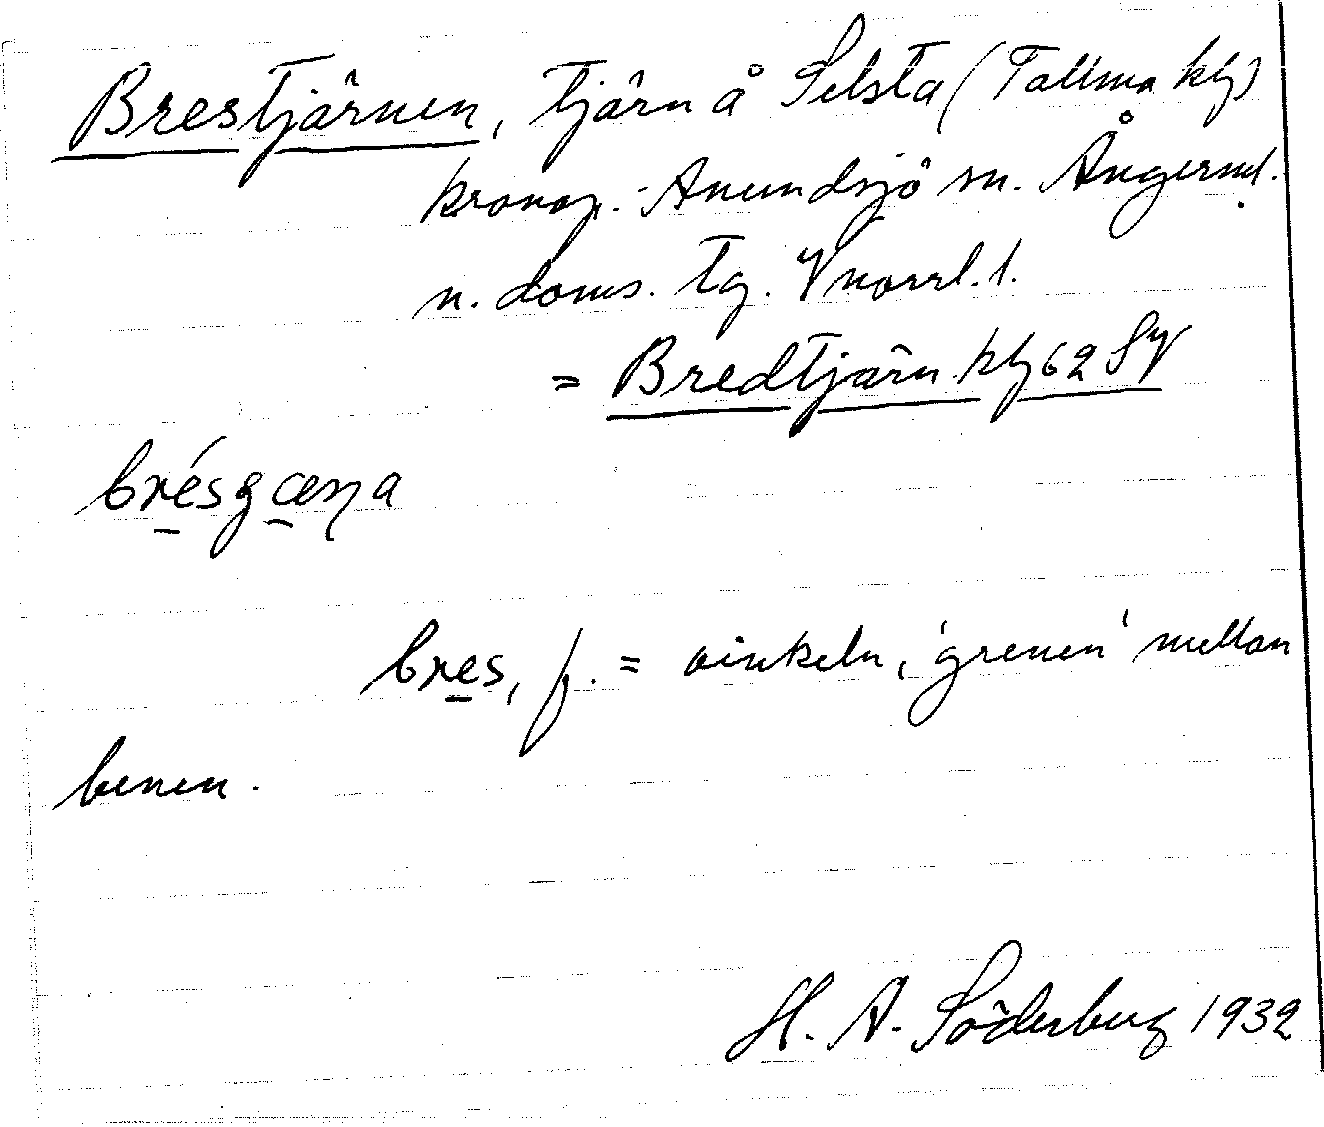 Brestjärnen, tjärn å Selsta (Tallmo kbl)
kronop. Anundsjö sn. Ångerml.
n. doms. tg. Vnorrl. l.
= Bredtjärn kbl 62 SV
brésgæṇa
bres, f. = vinkeln, 'grenen' mellan
benen.
H. A. Söderberg 1932